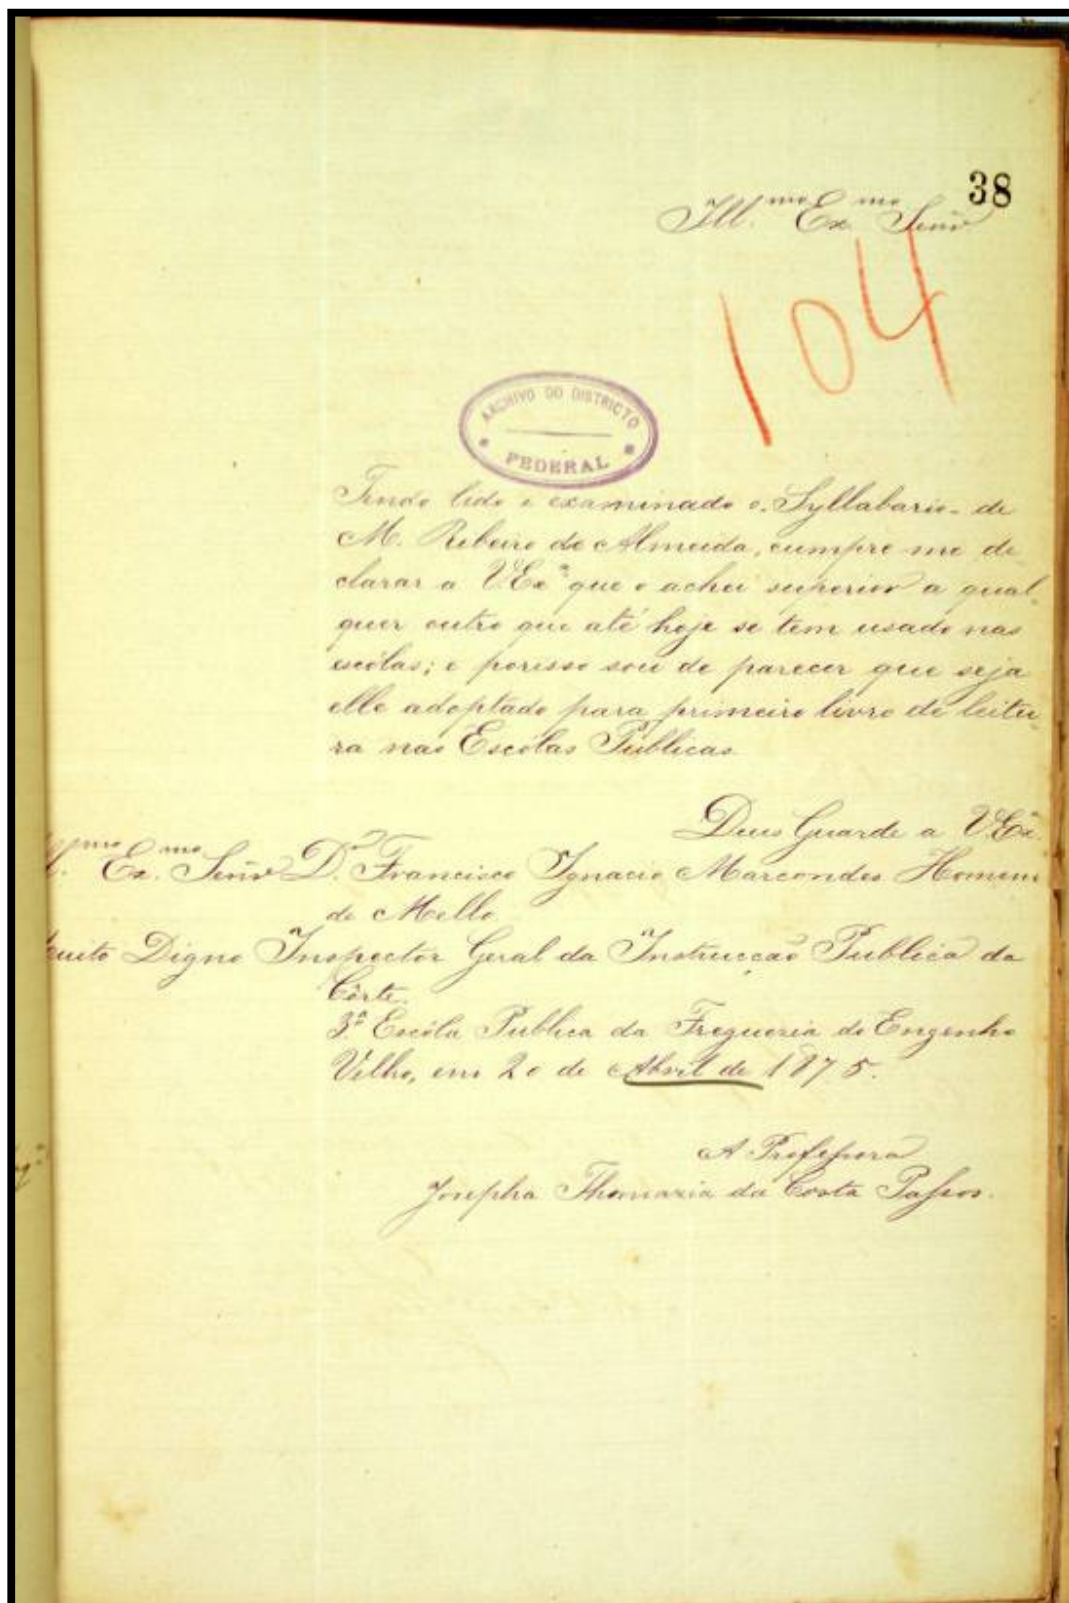 38
Ill.mo Ex.mo Senr.
104
ARCHIVO DO DISTRICTO
FEDERAL
Tendo lido e examinado o Syllabario de
M. Ribeiro de Almeida, cumpre me de
clarar a V.Exª que o achei superior a qual
quer outro que até hoje se tem usado nas
escólas; e porisso sou de parecer que seja
elle adoptado para primeiro livro de leitu
ra nas Escólas Públicas
Deus Guarde a V.Exª.
mo Ex.mo Senr. Dr. Francisco Ignacio Marcondes Homem
de Mello
uito Digno Inspector Geral da Instrucção Publica da
Côrte.
3ª Escóla Publica da Freguezia do Engenho
Velho, em 20 de Abril de 1875.
A Professora
Josepha Thomazia da Costa Passos.